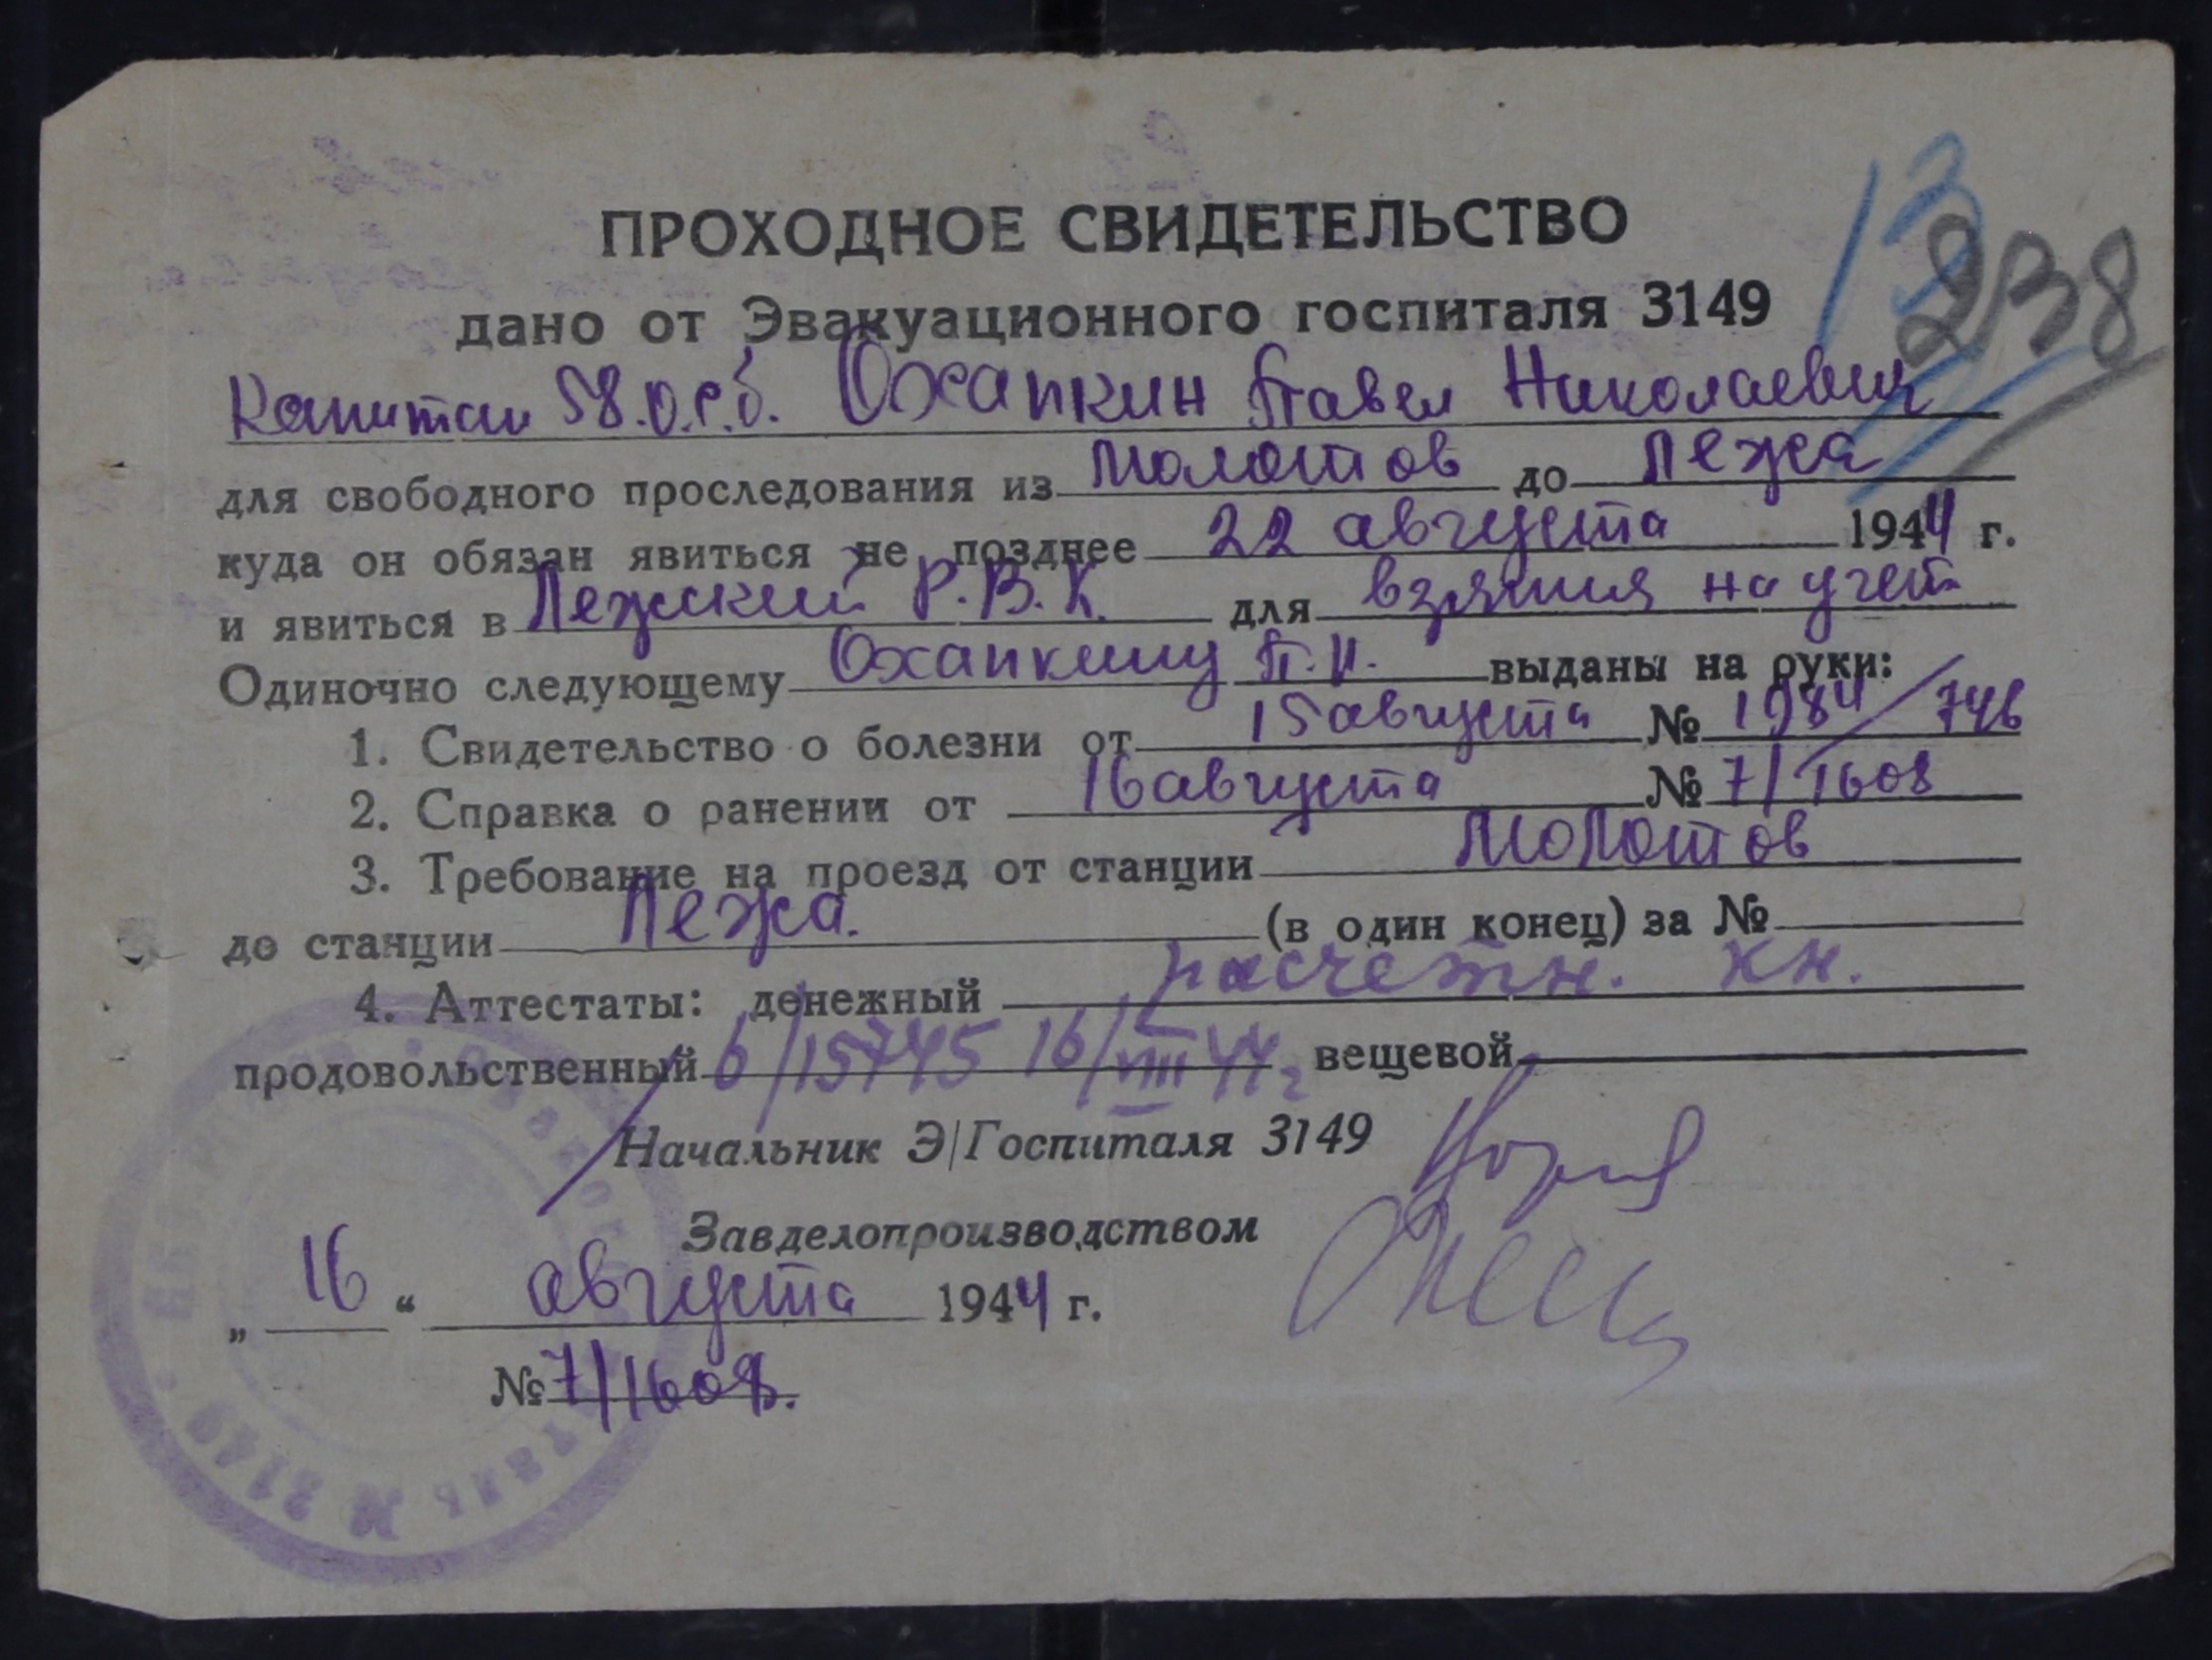 13
238
ПРОХОДНОЕ СВИДЕТЕЛЬСТВО
дано от Эвакуационного госпиталя 3149
Капитан 58.О.С.б. Охапкин Павел Николаевич
для свободного проследования из Молотов до Лежа
куда он обязан явиться не позднее 22 августа 1944 г.
и явиться в Лежский Р.В.К. для взятия на учет
Одиночно следующему Охапкину П.Н. выданы на руки:
1. Свидетельство о болезни от 15 августа № 1984/746
2. Справка о ранении от 16 августа № 7/1608
3. Требование на проезд от станции Молотов
до станции Лежа. (в один конец) за №
4. Аттестаты: денежный расчетн. кн.
продовольственный 6/15745 16/VIII 44 г вещевой
Начальник Э/Госпиталя 3149
Завделопроизводством
„ 16 “ августа 1944 г.
№ 7/1608.
№ 3149